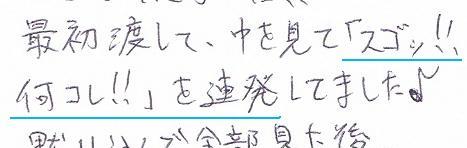 最初渡して、中を見て「スゴッ!!
何コレ!!」を連発してました♪